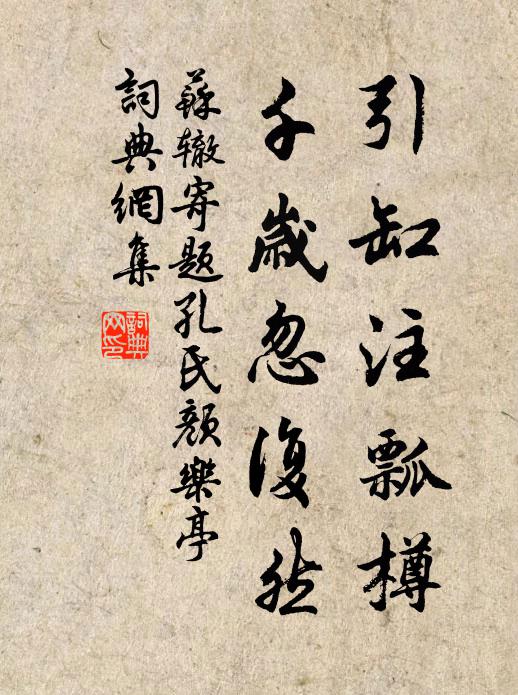 引缸注瓢樽
千歲忽復然
蘇轍寄题孔氏顏樂亭
詞典網集
詞典網印